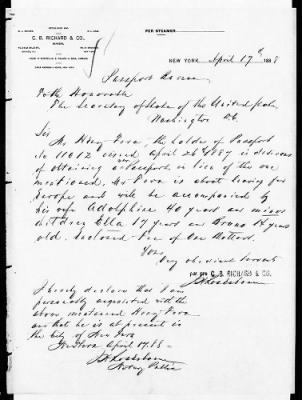 C. B. RICHARD & CO.
PER STEAMER
NEW YORK, April 17th 1888
Passport Bureau
To the Honorable
The Secretary of State of the United States
Washington D.C.
Sir
Mr Henry, the holder of Passport
No 11012 issued April 26 1887 is desirous
of obtaining a new Passport in lieu of the one
mentioned. Mr is about leaving for
Europe and will be accompanied by
his wife Adolphine 40 years and minor
children Ella 17 years and Bruno 14 years
old. Enclosed fee of One Dollar.
Your
Very obedient servant
per pro C. B. RICHARD & CO.
I hereby declare that I am
personally acquainted with the
above mentioned Henry
and that he is at present in
the City of New York
New York April 17. 88
Notary Public